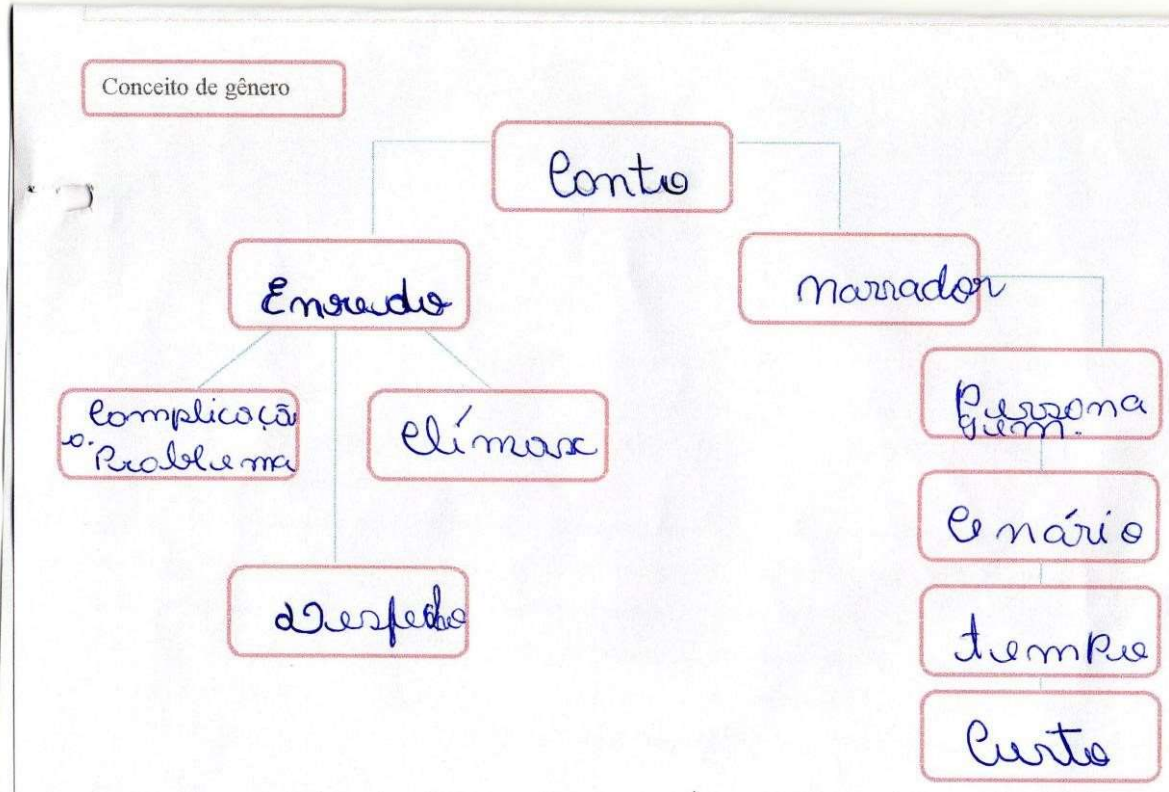 Conceito de gênero
Conto
Enredo
narrador
Complicaçã
o.
Problema
Clímax
Persona
gem.
Cenário
Desfecho
tempo
Curto